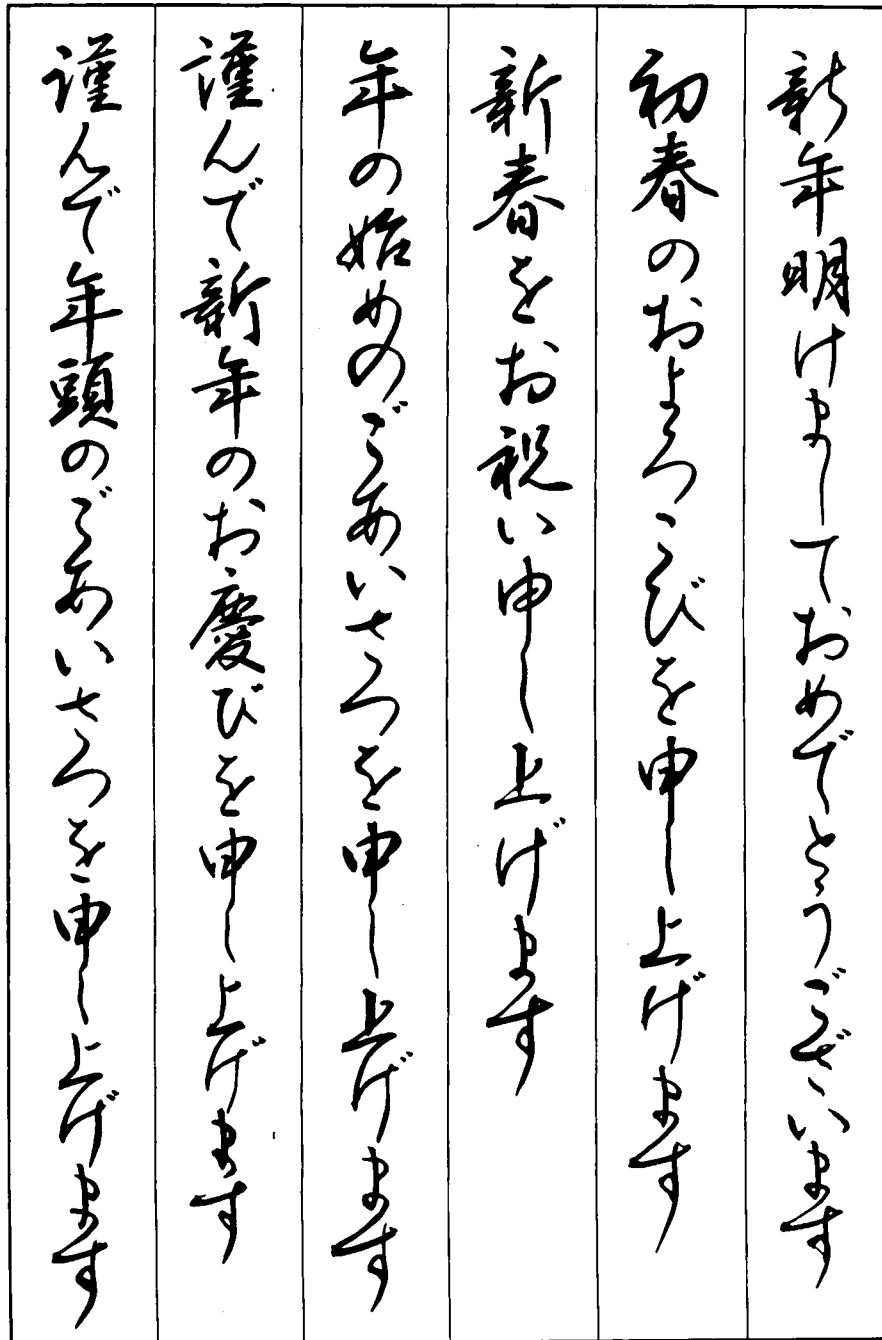 新年明けましておめでとうございます
初春のおよろこびを申し上げます
新春をお祝い申し上げます
年の始めのごあいさつを申し上げます
謹んで新年のお慶びを申し上げます
謹んで年頭のごあいさつを申し上げます